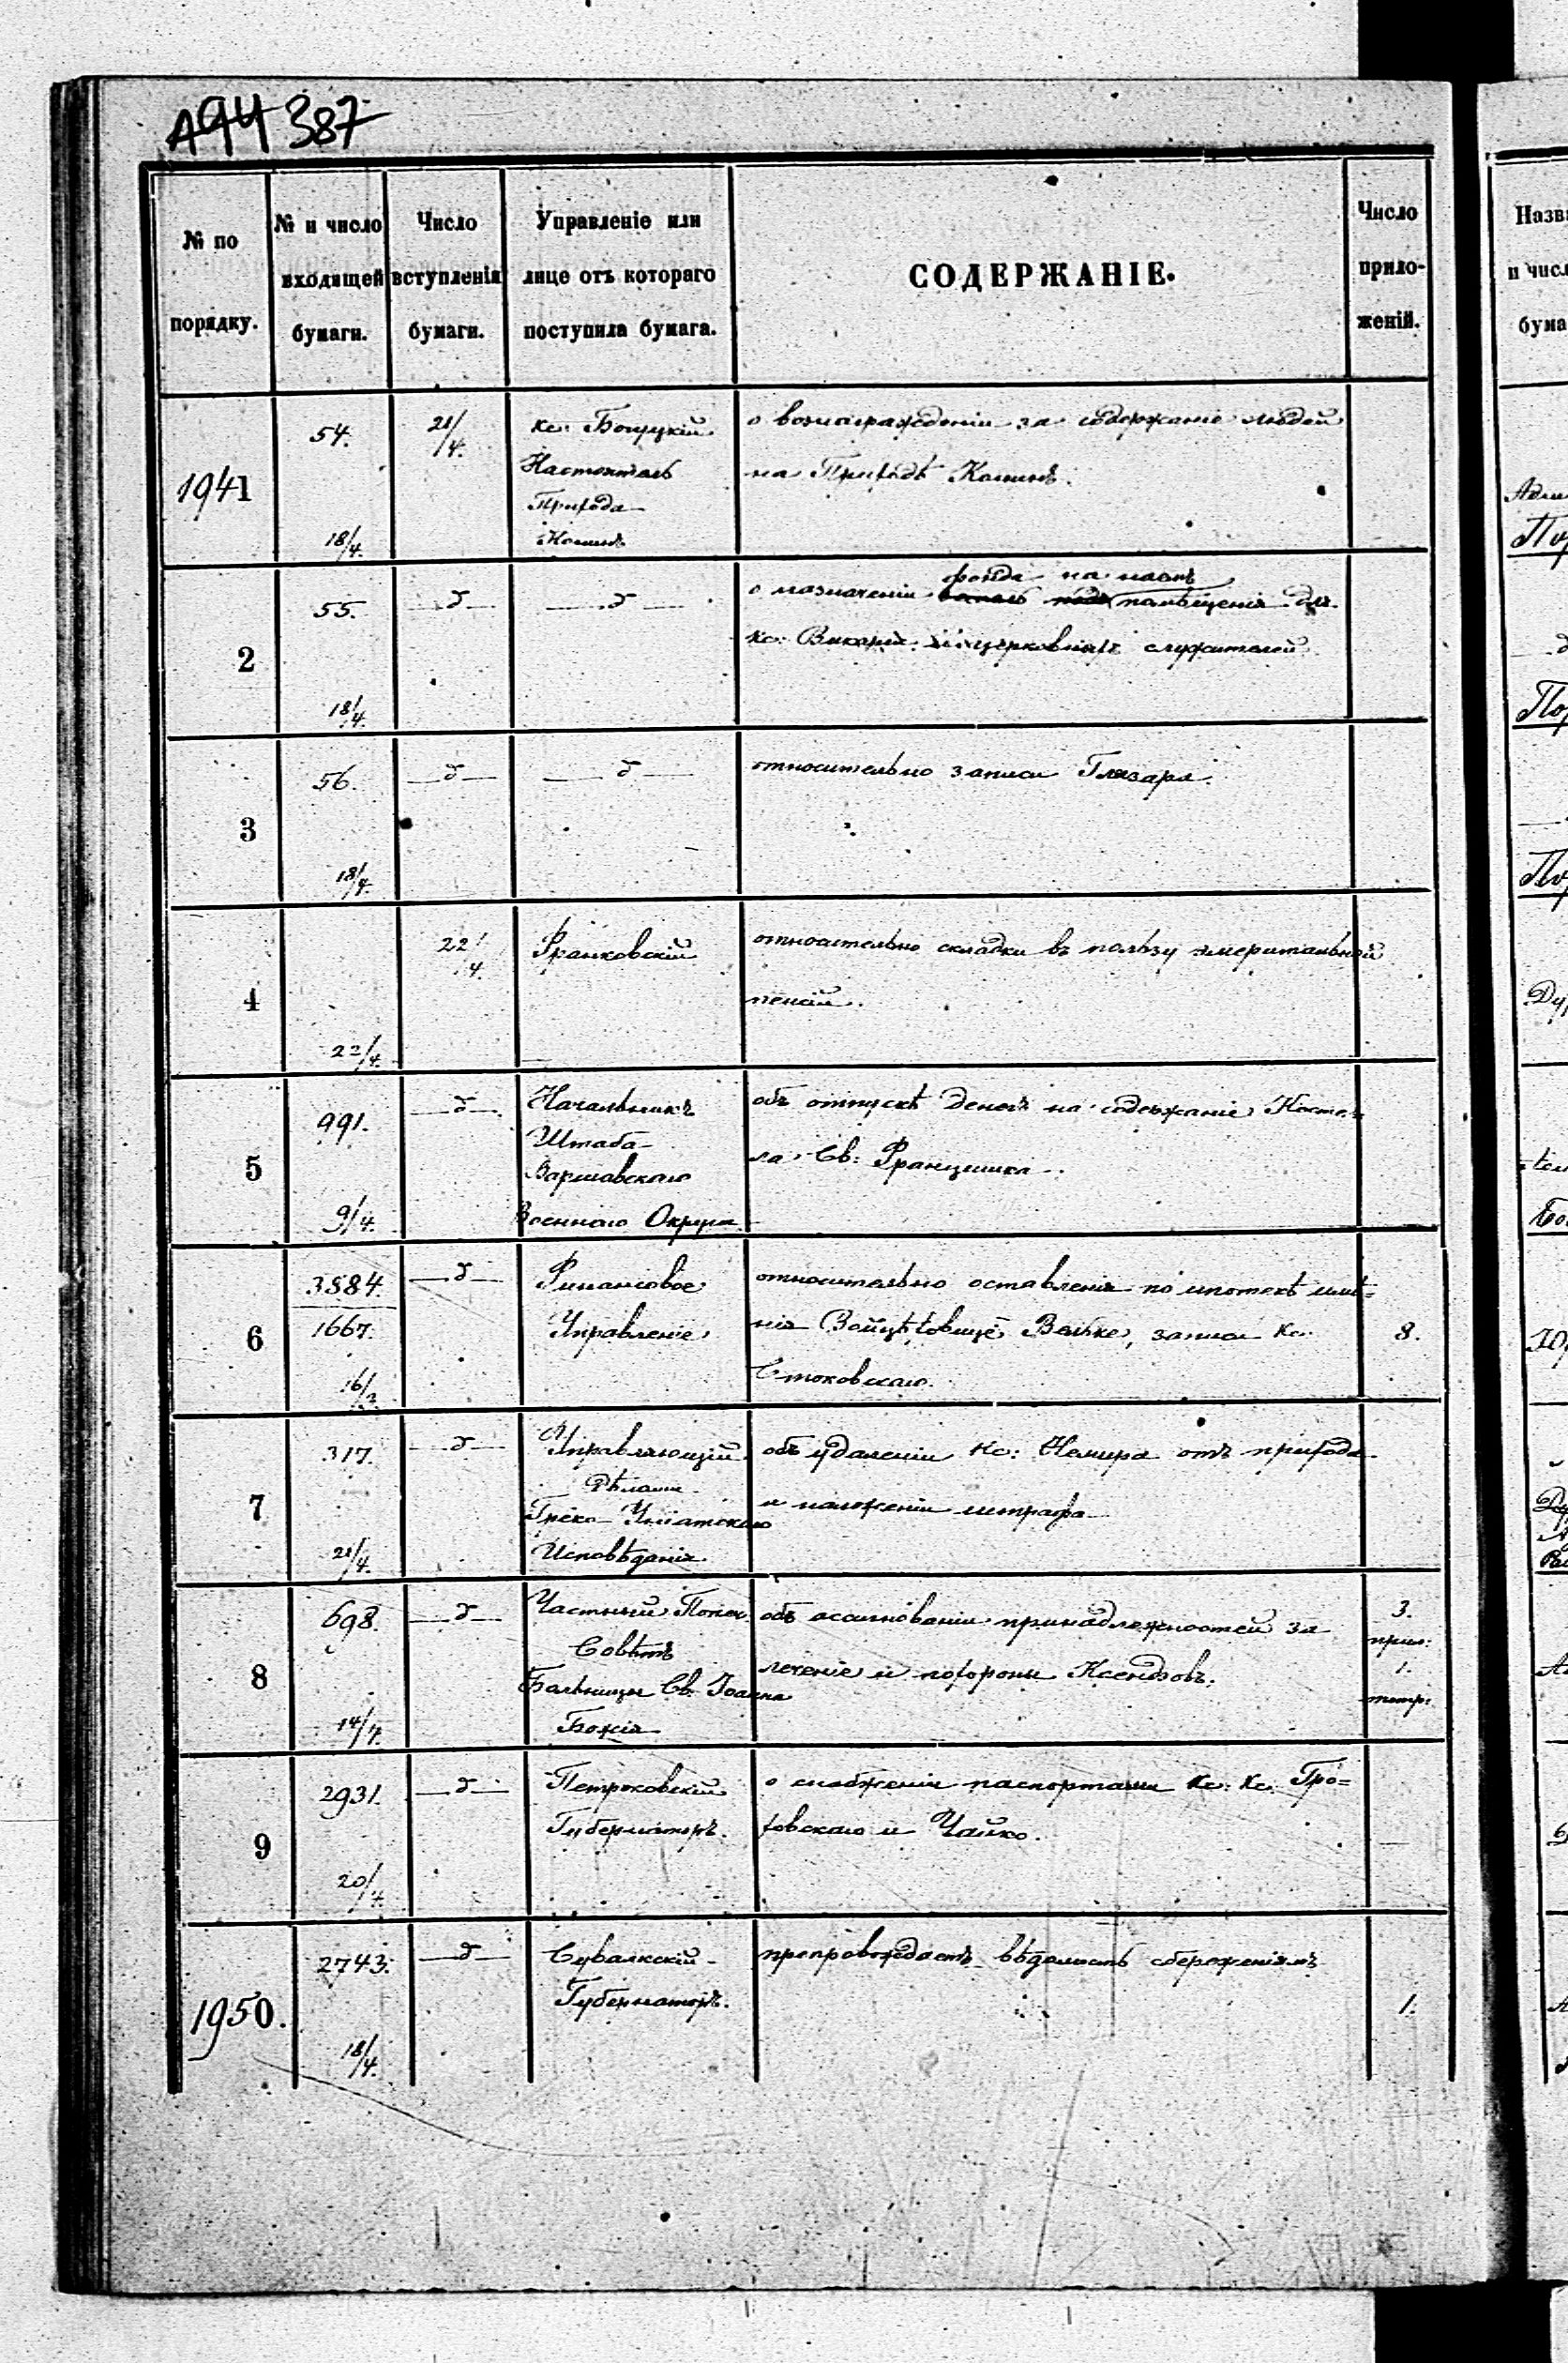 194 387
№ по порядку.
№ и число входящей бумаги.
Число вступленія бумаги.
Управленіе или лице отъ котораго поступила бумага.
СОДЕРЖАНІЕ.
Число прило-женій.
1941
54.
18/4.
21/4.
кс:
Настоятель
Прихода
о вознагражденіи за содержаніе людей
на Приходѣ
2
55.
18/4.
—д—
—д—
фонда на наемъ
о назначеніи помѣщенія для
кс: Викарія и церковныхъ служителей
3
56.
18/4.
—д—
—д—
относительно записи Глазера.
4
22/4.
22/4
Франковскій
относительно складки въ пользу эмеритальной
пенсіи.
5
991.
9/4.
—д—
Начальникъ
Штаба
Варшавскаго
Военнаго Округа
объ отпускѣ денегъ на содержаніе Косте-
ла Св: Францишка.
6
3884.
1667.
16/3
—д—
Финансовое
Управленіе
относительно оставленія по ипотекѣ имѣ-
нія записи Кс.
Стоковскаго.
8.
7
317.
21/4.
—д—
Управляющій
Дѣлами
Греко-Уніатскаго
Исповѣданія
объ удаленіи Кс: Немира отъ прихода
и наложеніи штрафа
8
698.
14/4.
—д—
Частный Попеч.
Совѣтъ
Больницы Св. Іоанна
Божія
объ ассигнованіи принадлежностей за
леченіе и похороны Ксендзовъ.
3.
прил:
1.
9
2931.
20/4.
—д—
Петроковскій
Губернаторъ.
о снабженіи паспортами Кс: Кс: Гро=
ховскаго и Чайко.
1950.
2743.
18/4.
—д—
Сувалкскій
Губернаторъ.
препровождаетъ вѣдомость сбереженіямъ
1.